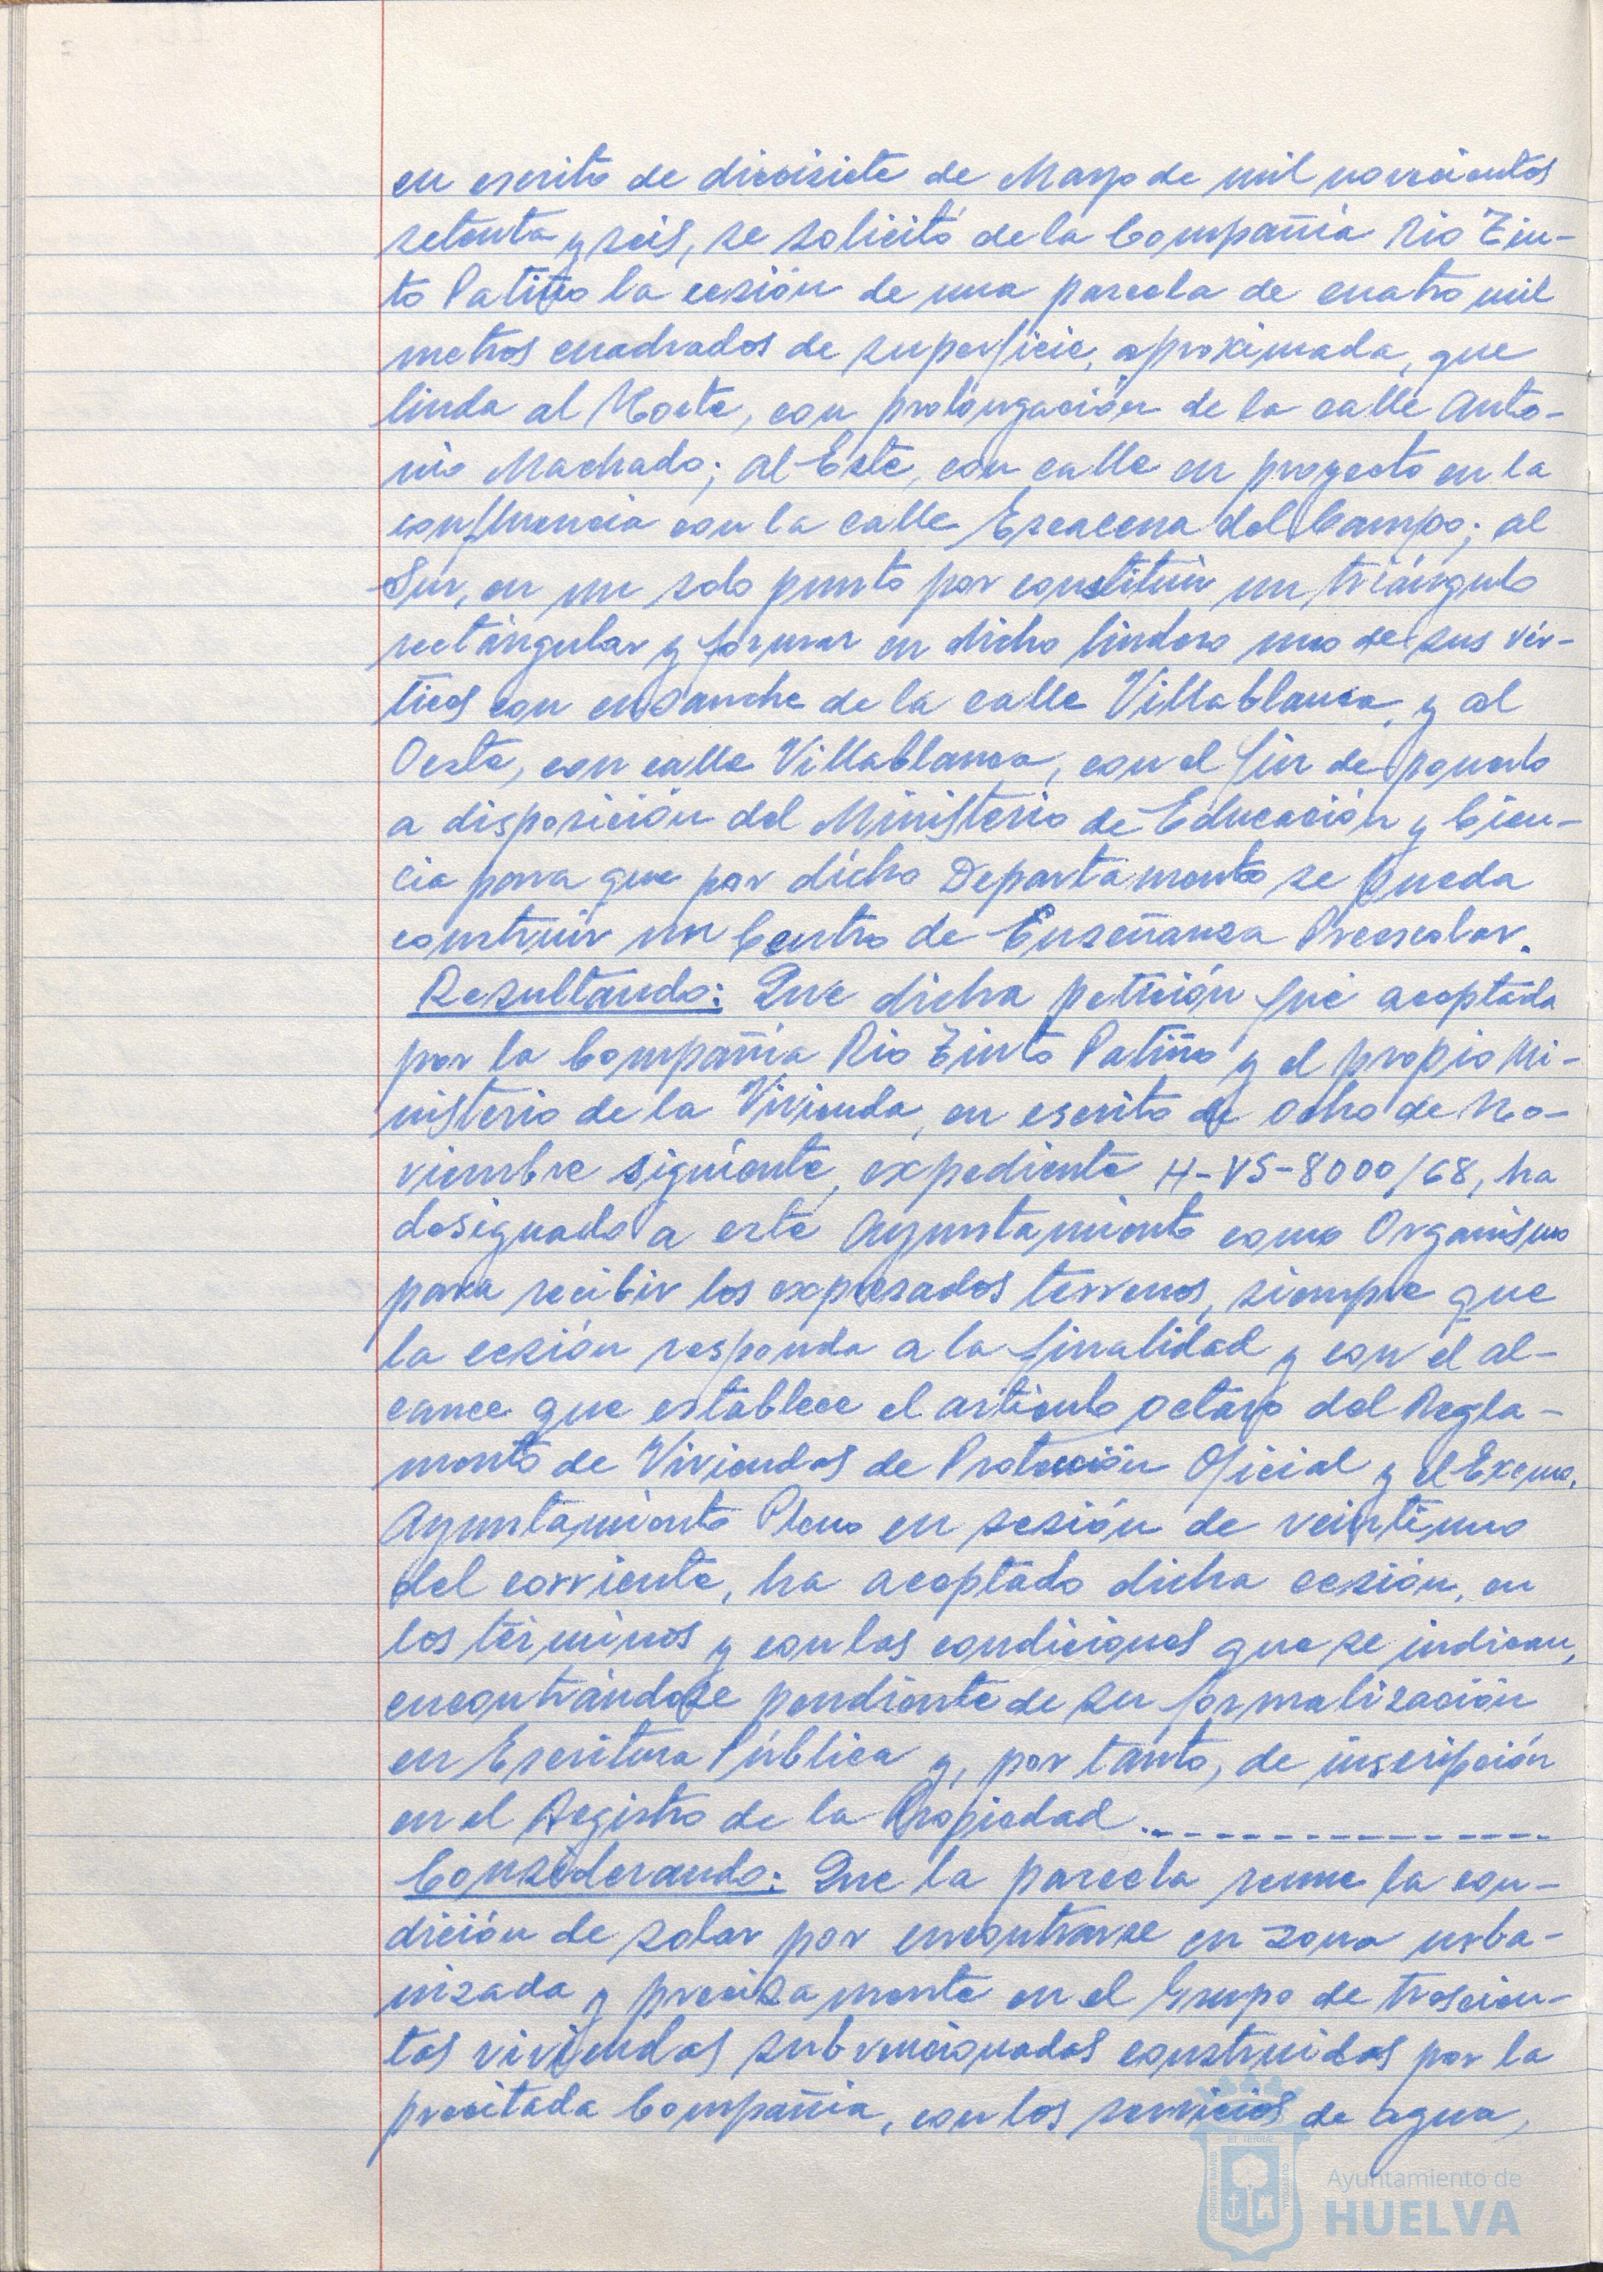 en escrito de diecisiete de Mayo de mil novecientos
setenta y seis, se solicitó de la Compañia Rio Tin-
to Patiño la cesión de una parcela de cuatro mil
metros cuadrados de superficie, aproximada, que
linda al Norte, con prolongación de la calle Anto-
nio Machado; al Este, con calle en proyecto en la
confluencia con la calle Escacena del Campo; al
Sur, en un solo punto por constituir un triángulo
rectángular y formar en dicho lindero uno de sus vér-
tices con ensanche de la calle Villablanca, y al
Oeste, con calle Villablanca, con el fin de ponerlo
a disposición del Ministerio de Educación y Cien-
cia para que por dicho Departamento se pueda
construir un Centro de Enseñanza Preescolar.
Resultando: Que dicha petición fué aceptada
por la Compañia Rio Tinto Patiño y el propio Mi-
nisterio de la Vivienda, en escrito de ocho de No-
viembre siguiente, expediente H-VS-8000/68, ha
designado a este Ayuntamiento como Organismo
para recibir los expresados terrenos, siempre que
la cesión responda a la finalidad y con el al-
cance que establece el artículo octavo del Regla-
mento de Viviendas de Protección Oficial y el Excmo.
Ayuntamiento Pleno en sesión de veintiuno
del corriente, ha aceptado dicha cesión, en
los términos y con las condiciones que se indican,
encontrándose pendiente de su formalización
en Escritura Pública y, por tanto, de inscripción
en el Registro de la Propiedad.--------------
Considerando: Que la parcela reune la con-
dición de solar por encontrarse en zona urba-
nizada y precisamente en el Grupo de trescien-
tas viviendas subvencionadas construidas por la
precitada Compañia, con los servicios de agua,
PORTUS MARIS
ET TERRAE
CUSTODIA
Ayuntamiento de
HUELVA